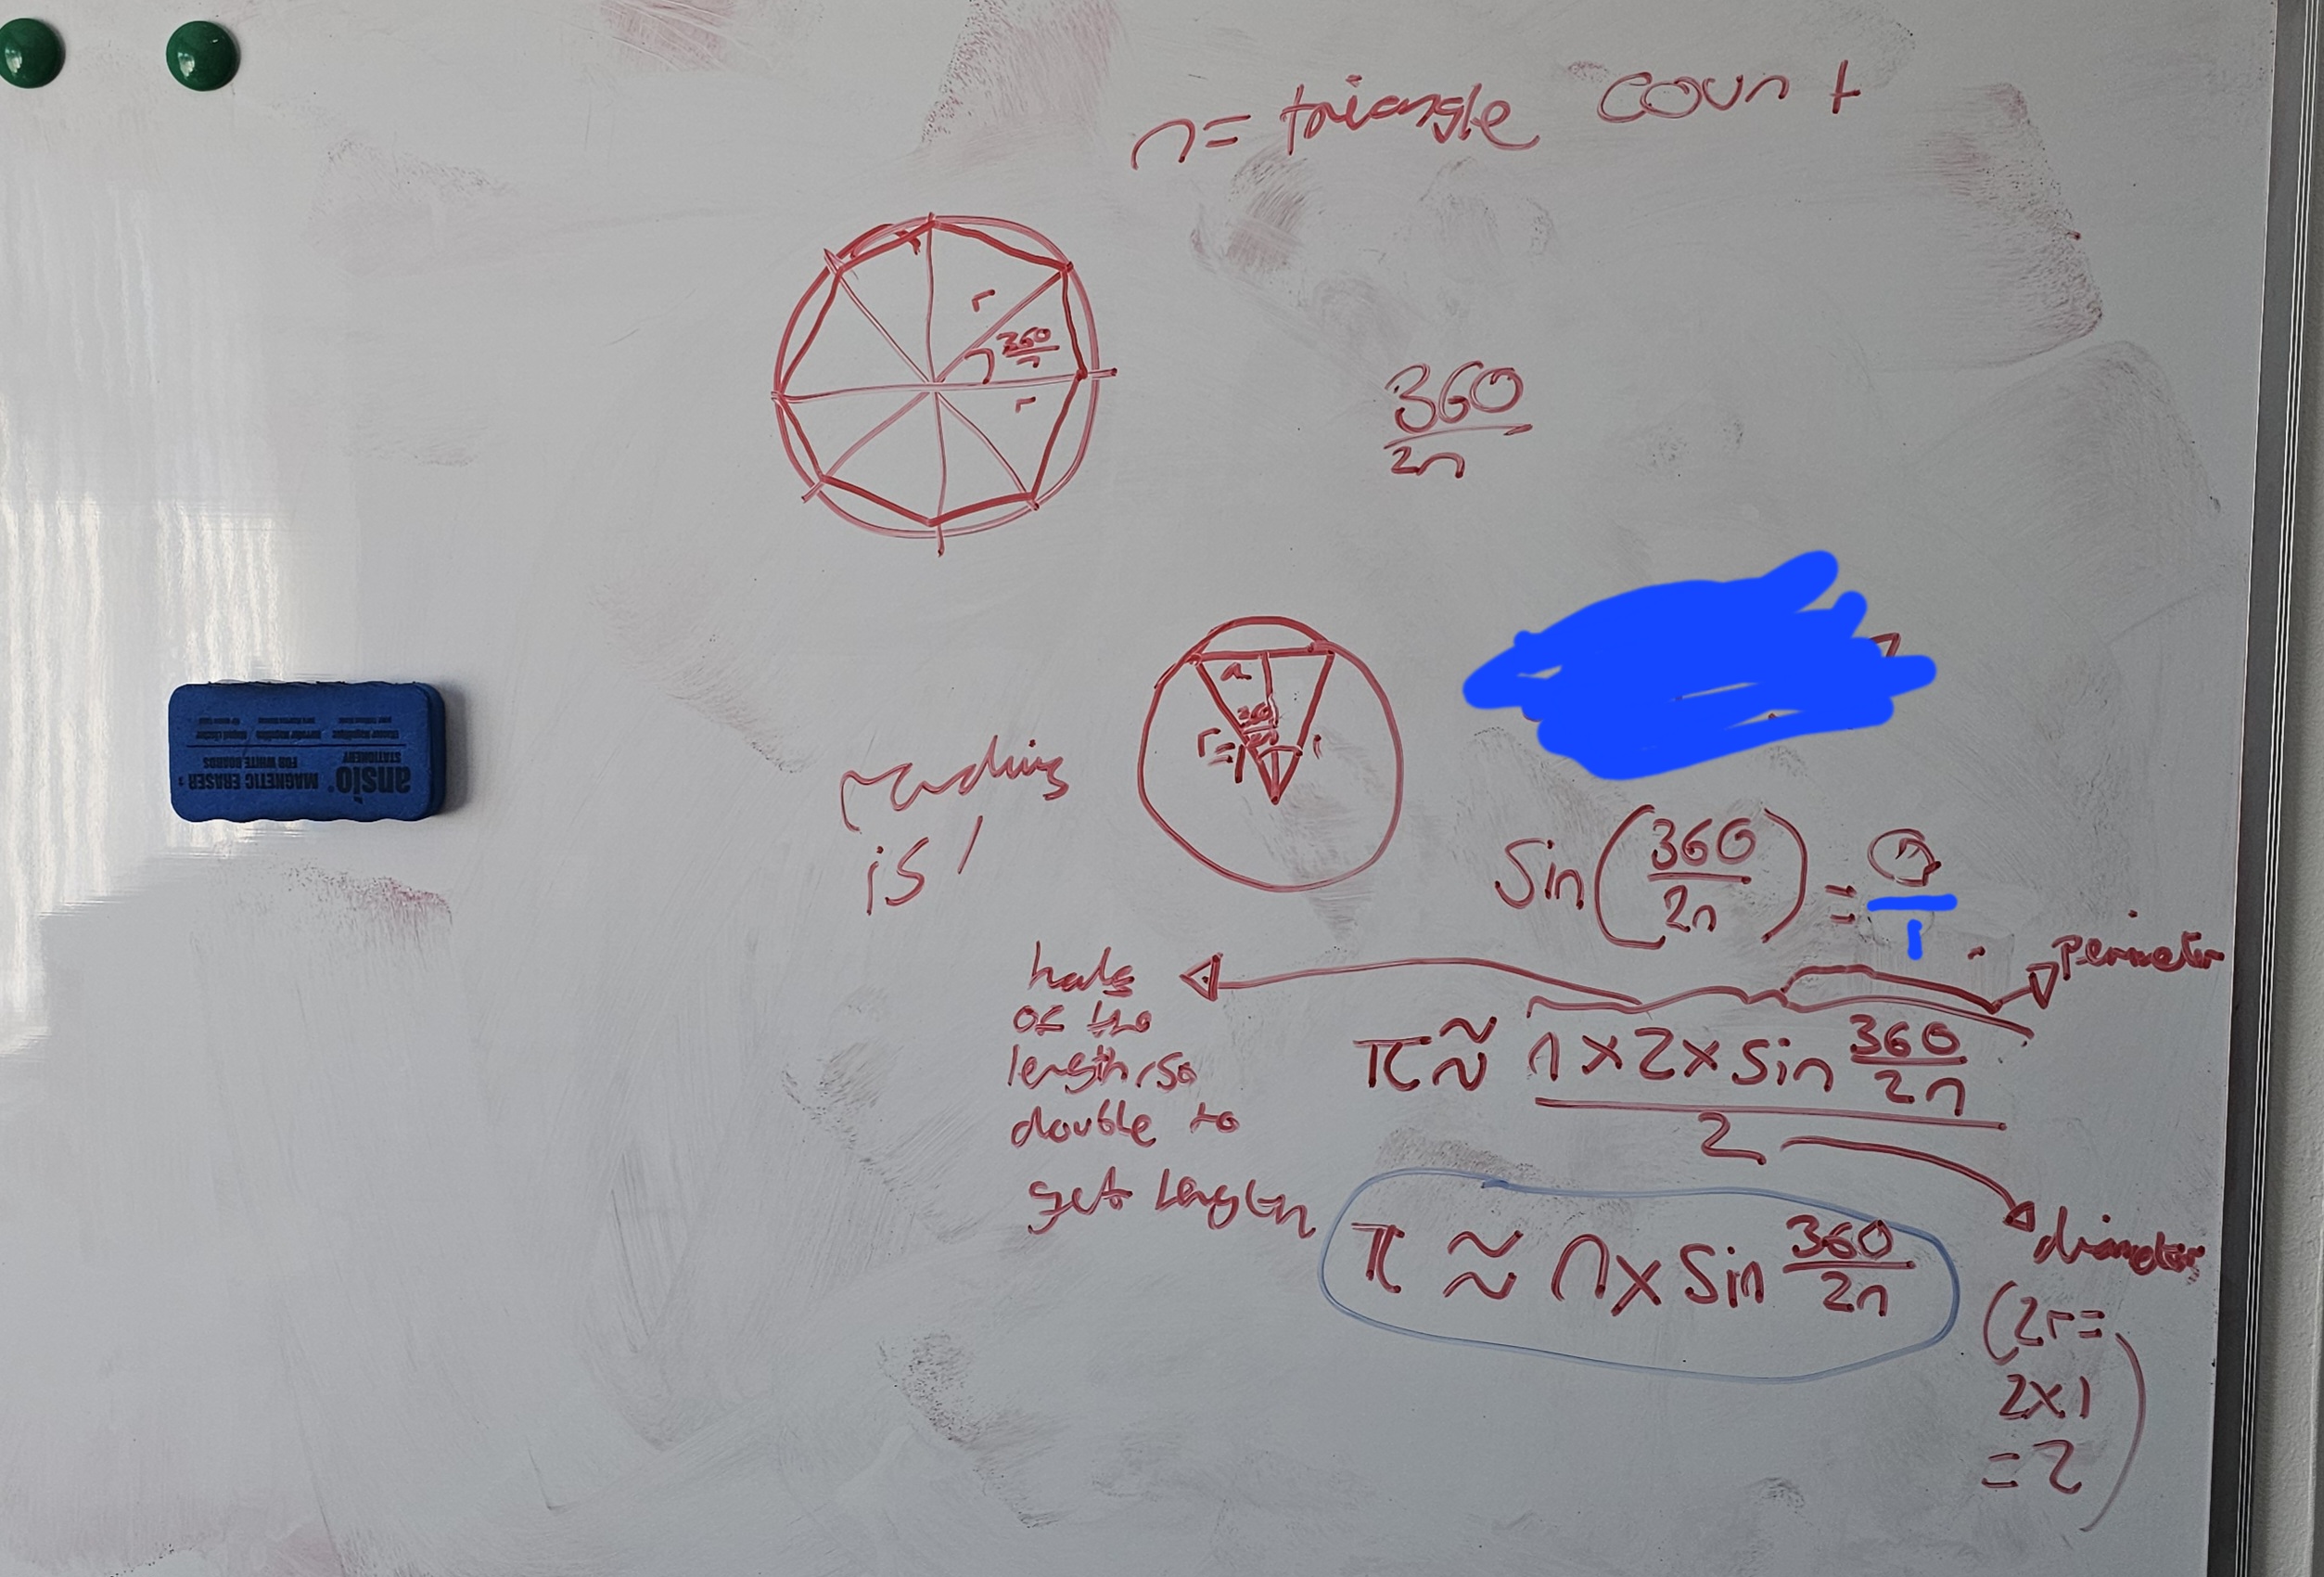 n = triangle count
r
360/n
r
360/2n
a
r=1
radius
is 1
Sin(360/2n) = a/1
perimeter
half
of the
length, so
double to
get length
π ≈ n×2×sin 360/2n
2
diameter
π ≈ n×sin 360/2n
(2r=
2×1
=2)
ansio
STATIONERY
MAGNETIC ERASER
FOR WHITE BOARDS